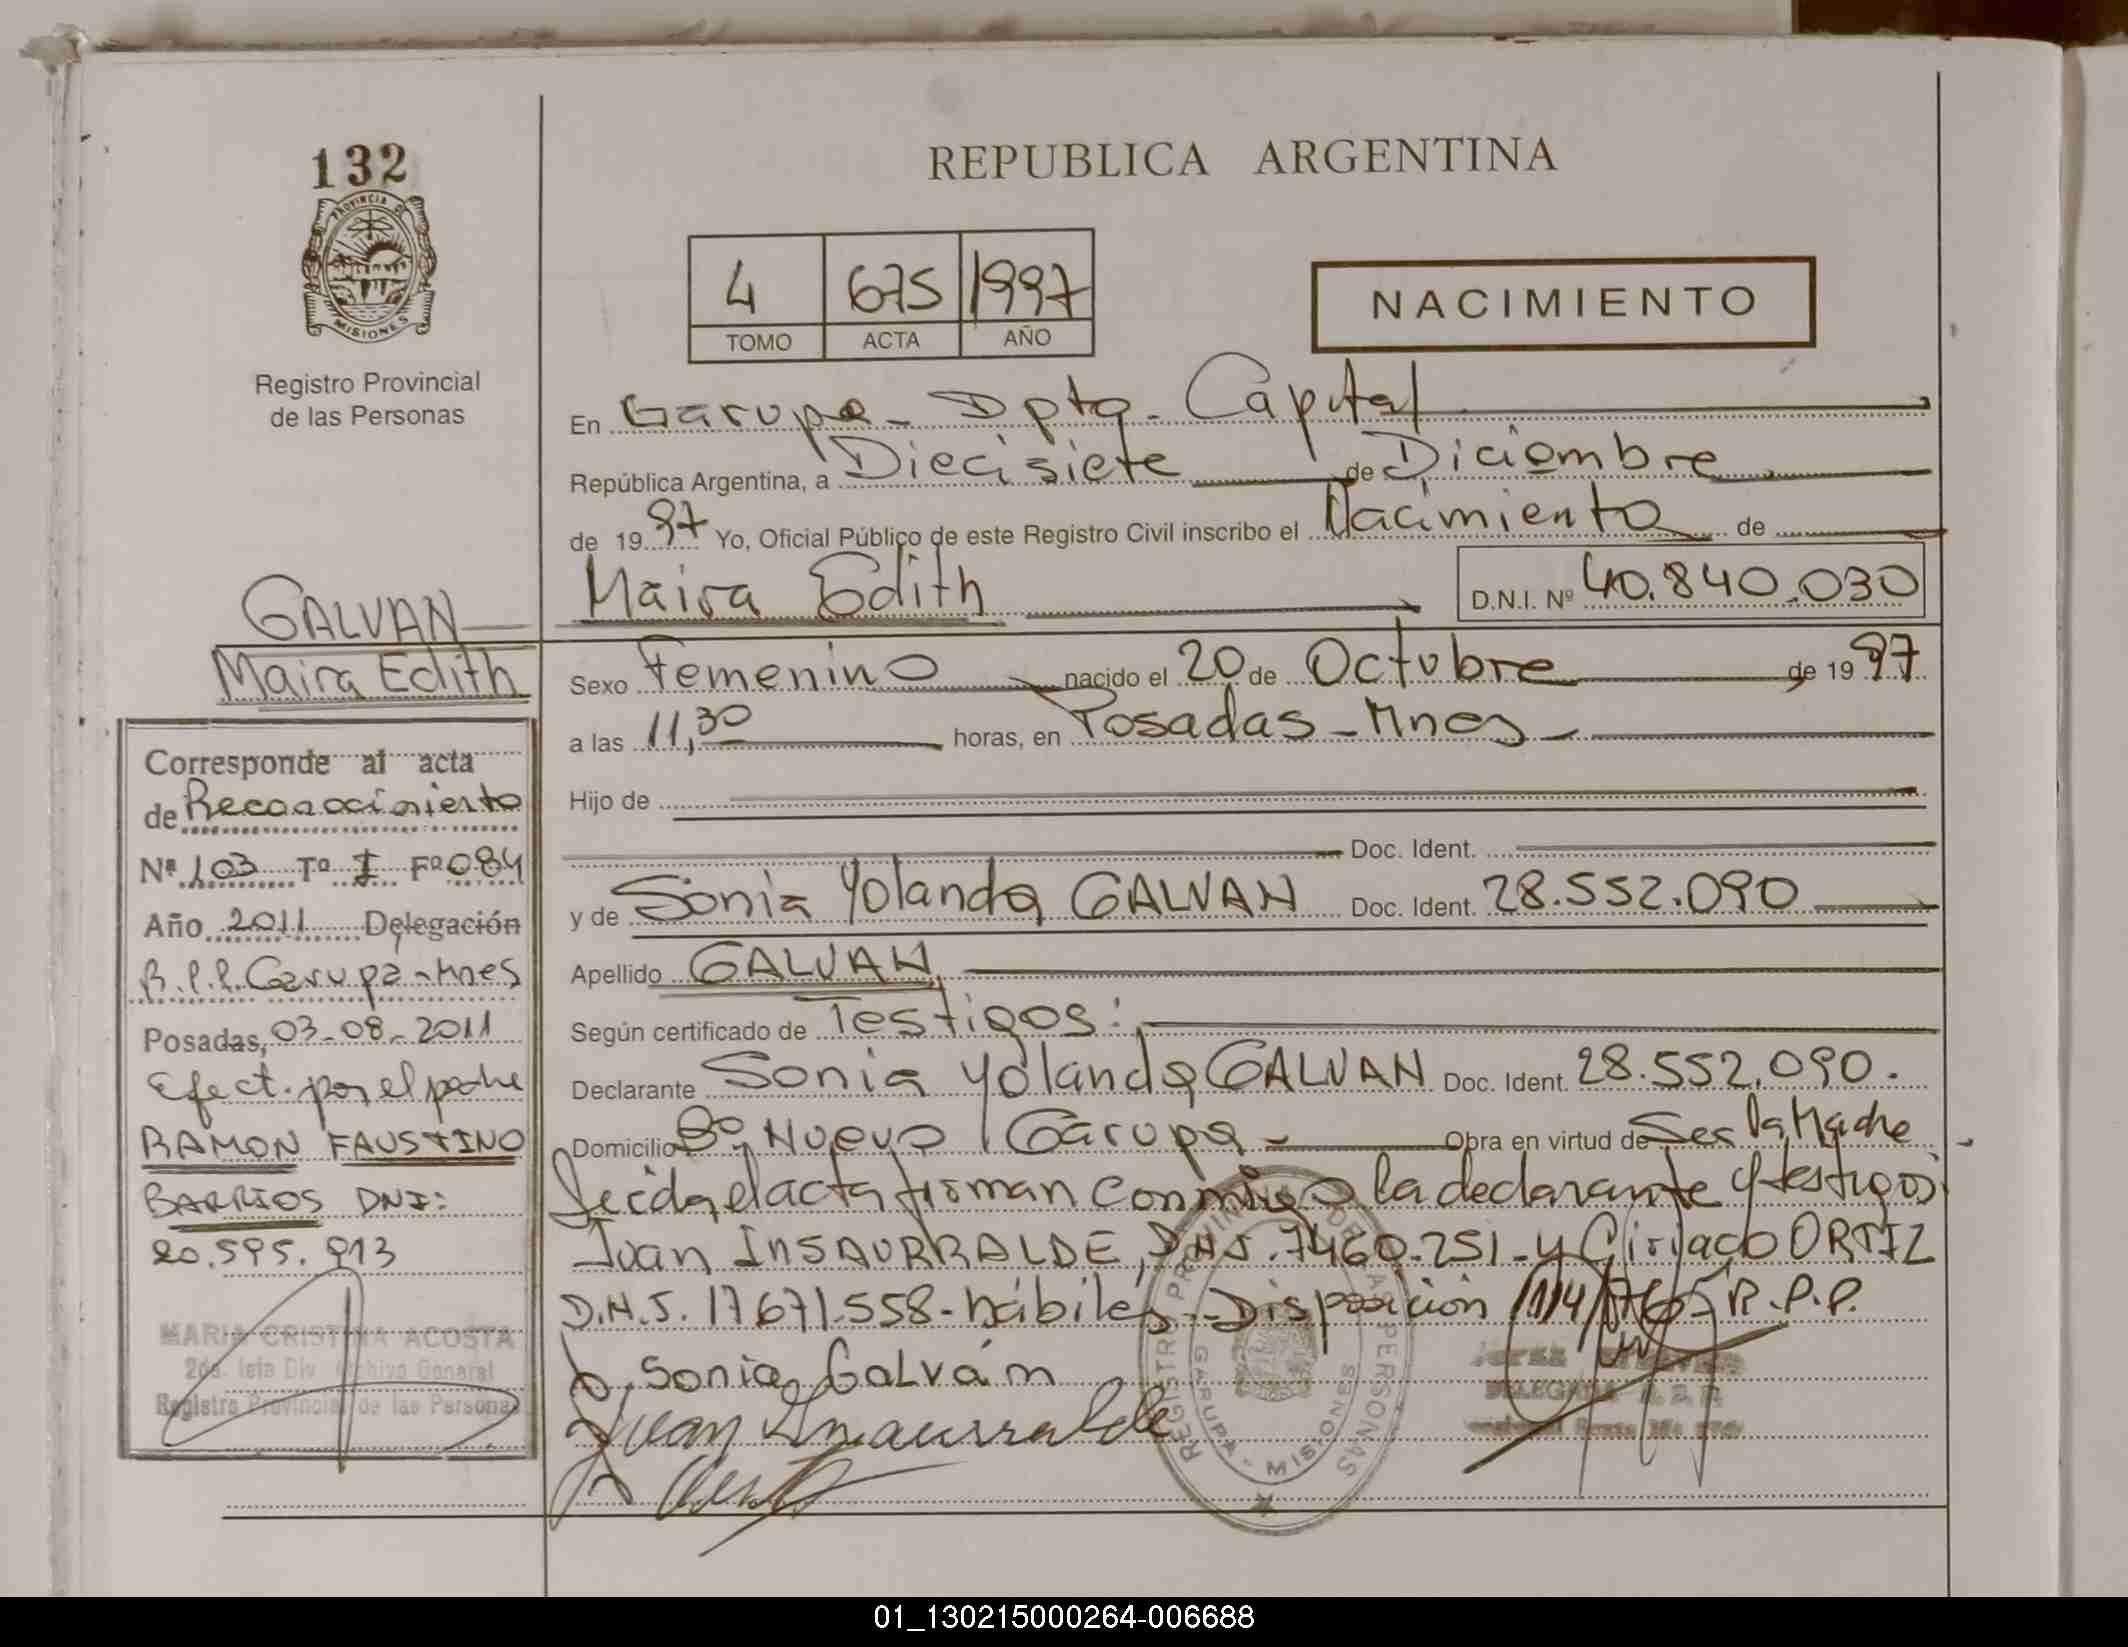 132
PROVINCIA DE
MISIONES
Registro Provincial
de las Personas
GALVAN
Maira Edith
Corresponde al acta
de Reconocimiento
Nº 103 Tº I Fº 084
Año 2011 Delegación
R.P.P. Garupa-Mnes
Posadas, 03-08-2011
Efect. por el padre
RAMON FAUSTINO
BARRIOS DNI:
20.595.913
MARIA CRISTINA ACOSTA
2da. Jefa Div. Archivo General
Registro Provincial de las Personas
REPUBLICA ARGENTINA
4 675 1997
TOMO ACTA AÑO
NACIMIENTO
En Garupa - Dpto. Capital
República Argentina, a Diecisiete de Diciembre
de 1997 Yo, Oficial Público de este Registro Civil inscribo el Nacimiento de
Maira Edith D.N.I. Nº 40.840.030
Sexo Femenino nacido el 20 de Octubre de 1997
a las 11,30 horas, en Posadas - Mnes -
Hijo de
Doc. Ident.
y de Sonia Yolanda GALVAN Doc. Ident. 28.552.090
Apellido GALVAN
Según certificado de Testigos:
Declarante Sonia Yolanda GALVAN Doc. Ident. 28.552.090.
Domicilio Bº Nuevo Garupa - Obra en virtud de Ser la Madre
Leida el acta firman conmigo la declarante y testigos
Juan INSAURRALDE, D.N.I. 7460.251 - y Ciriaco ORTIZ
D.N.I. 17671.558 - hábiles - Disposición R.P.P.
Sonia Galván
Juan Insaurralde
REGISTRO PROVINCIAL DE LAS PERSONAS
GARUPA - MISIONES
DELEGADA R.P.P.
01_130215000264-006688